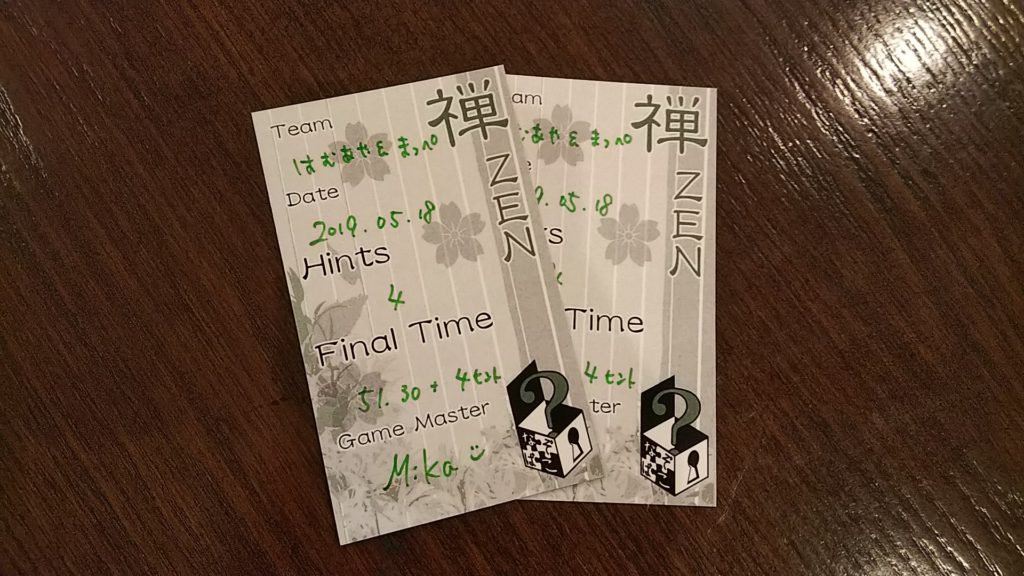 Team
はむあや&まっぺ
Date
2019.05.18
Hints
4
Final Time
51.30 + 4ヒント
Game Master
Mika
禅
ZEN
?
なぞばこ
am
あや&まっぺ
9.05.18
Time
4ヒント
ter
禅
ZEN
?
なぞばこ